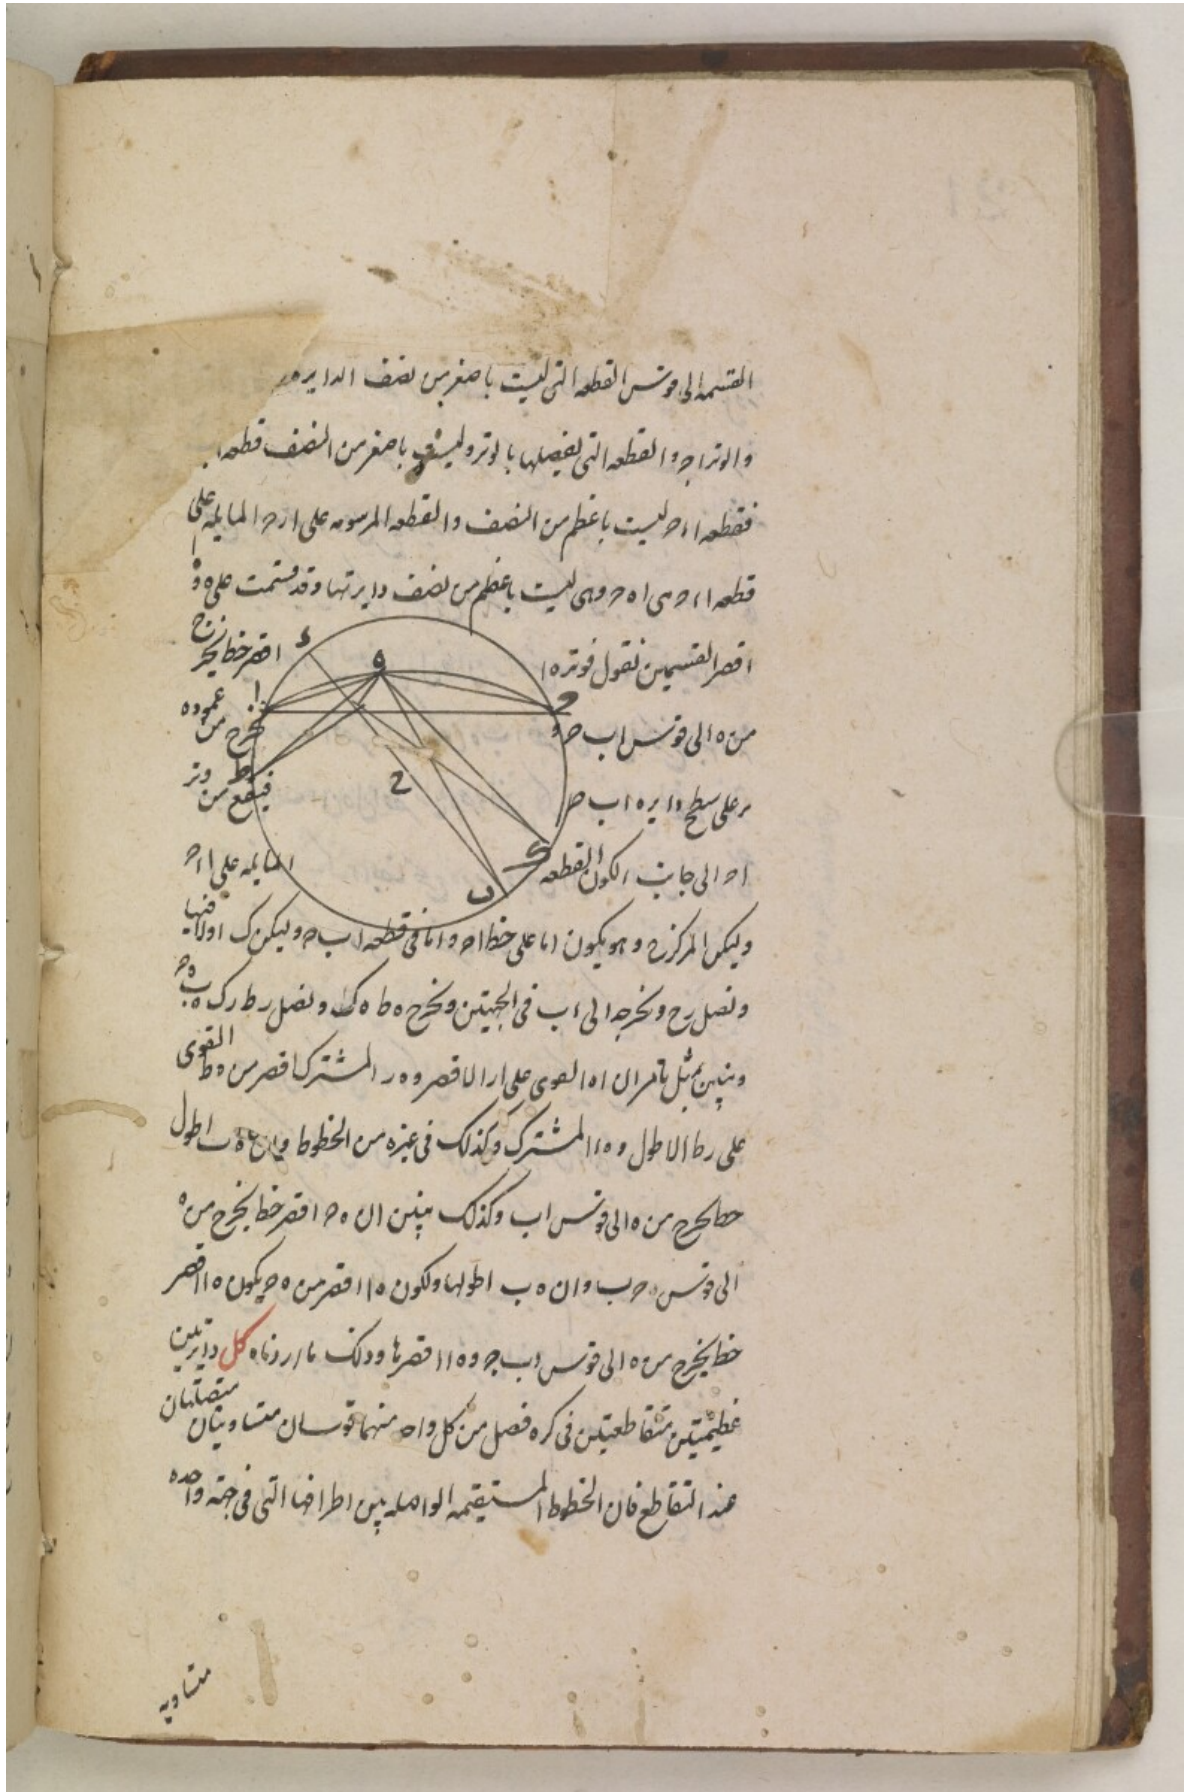 القسمه الى قوس القطعه التى ليست باصغر من نصف الدايره
والوتر ا ح والقطعه التى يفصلها بالوتر وليست باصغر من النصف قطعه ا ب
فقطعه ا ء ح ليست باعظم من النصف والقطعه المرسومه على ا ح المايله على
قطعه ا ء ح هى ا ه ح وهى ليست باعظم من نصف دايرتها وقد قسمت على ه و
اقصر القسمين فنقول فوتر ه ا اقصر خط يخرج
من ه الى قوس ا ب ح و نخرج من ه عمود
ه ر على سطح دايره ا ب ح فيقع من وتر
ا ح الى جانب لكون القطعه المايله على ا ء ح
وليكن المركز ح وهو يكون اما على خط ا ح واما فى قطعه ا ب ح وليكن ك اولا فيها
ونصل ر ح ونخرجه الى ء ب فى الجهتين ونخرج ه ط ه ك ونصل ر ط ر ك ه ب ه ح
ونبين بمثل ما مر ان ه ا القوى على ا ر الاقصر و ه ر المشترك اقصر من ه ط القوى
على ر ط الاطول و ه ر المشترك وكذلك فى غيره من الخطوط وان ه ب اطول
خط يخرج من ه الى قوس ا ب وكذلك نبين ان ه ح اقصر خط يخرج من ه
الى قوس ح ب وان ه ب اطولها ولكون ه ا اقصر من ه ح يكون ه ا اقصر
خط يخرج من ه الى قوس ا ب ح و ه ا اقصرها وذلك ما اردناه كل دايرتين
عظيمتين متقاطعتين فى كره فصل من كل واحد منهما قوسان متساويتان متصلتان
عند التقاطع فان الخطوط المستقيمه الواصله بين اطرافها التى فى جهته واحده
متساويه